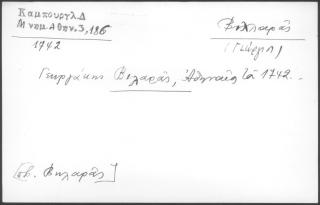 Καμπουργλ.Δ
Μνημ.Αθην.3,186
1742
Βιλλαρᾶς
(Γεώργιος)
Γεωργάκης Βιλαρᾶς, Ἀθηναῖος τὰ 1742.
[πβ. Βηλαρᾶς]